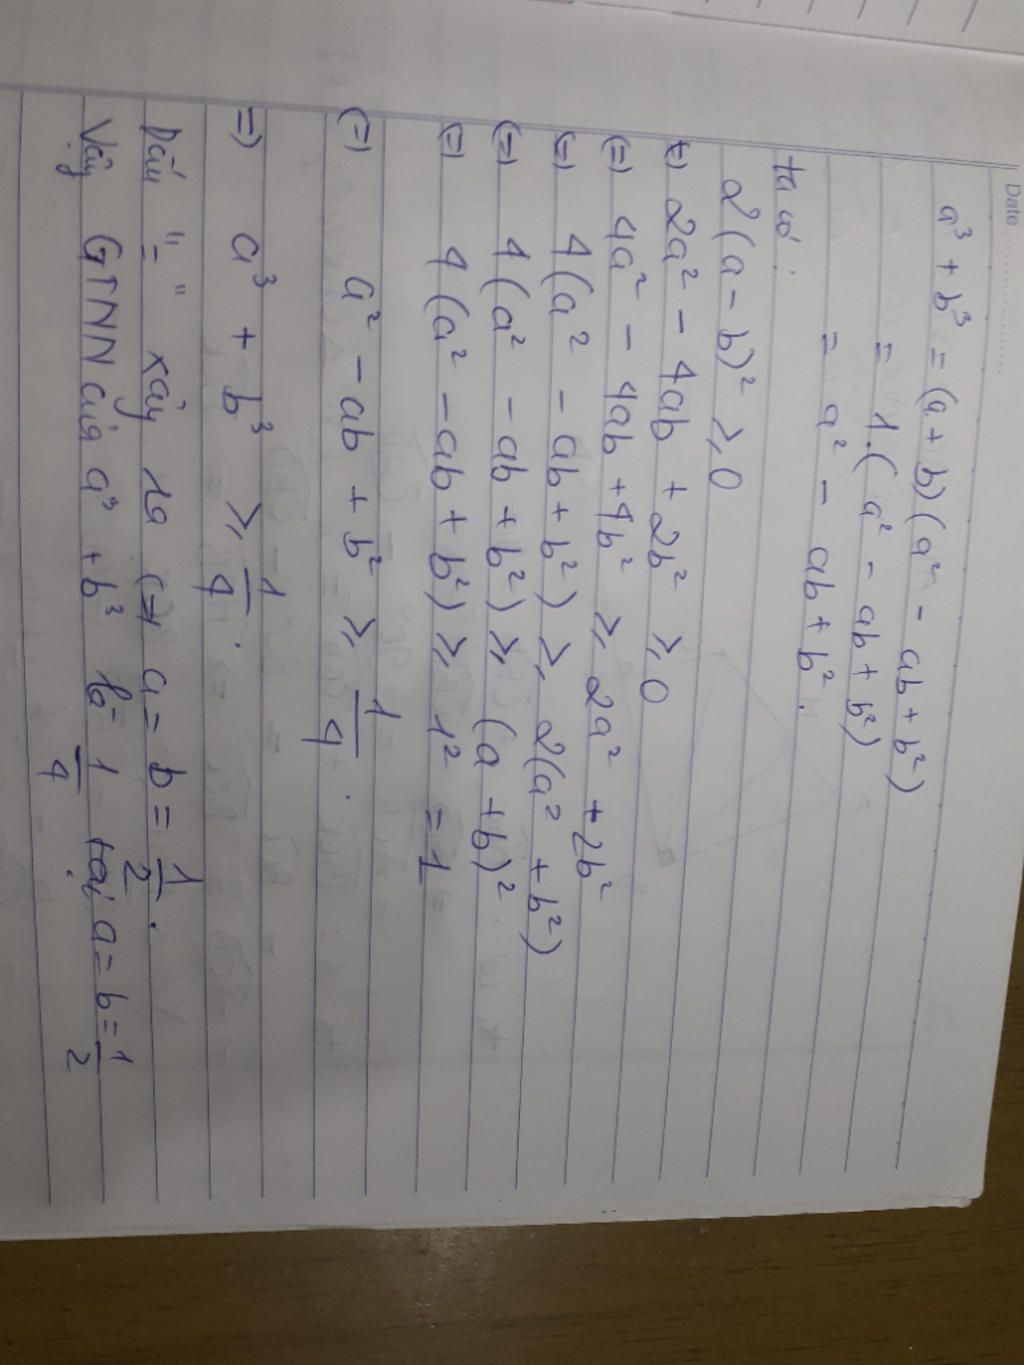 Date ............
a³ + b³ = (a + b)(a² - ab + b²)
= 1.(a² - ab + b²)
= a² - ab + b².
ta có :
2(a - b)² ≥ 0
(=) 2a² - 4ab + 2b² ≥ 0
(=) 4a² - 4ab + 4b² ≥ 2a² + 2b²
(=) 4(a² - ab + b²) ≥ 2(a² + b²)
(=) 4(a² - ab + b²) ≥ (a + b)²
(=) 4(a² - ab + b²) ≥ 1² = 1
(=) a² - ab + b² ≥ 1/4.
=) a³ + b³ ≥ 1/4.
Dấu "=" xảy ra (=) a = b = 1/2.
Vậy GTNN của a³ + b³ là = 1/4 tại a = b = 1/2